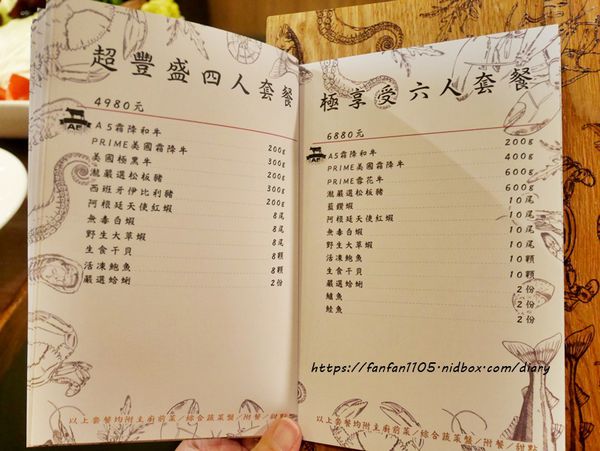 超豐盛四人套餐
4980元
A5
A5霜降和牛 200g
PRIME美國霜降牛 300g
美國極黑牛 200g
瀧嚴選松板豬 300g
西班牙伊比利豬 200g
阿根廷天使紅蝦 8尾
無毒白蝦 8尾
野生大草蝦 8尾
生食干貝 8顆
活凍鮑魚 8顆
嚴選蛤蜊 2份
以上套餐均附主廚前菜/綜合蔬菜盤/附餐/甜點
極享受六人套餐
6880元
A5
A5霜降和牛 200g
PRIME美國霜降牛 400g
PRIME雪花牛 600g
瀧嚴選松板豬 600g
藍鑽蝦 10尾
阿根廷天使紅蝦 10尾
無毒白蝦 10尾
野生大草蝦 10尾
活凍鮑魚 10顆
生食干貝 10顆
嚴選蛤蜊 2份
鱸魚 2份
鮭魚 2份
https://fanfan1105.nidbox.com/diary
以上套餐均附主廚前菜/綜合蔬菜盤/附餐/甜點